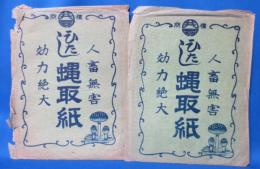 商標
ひた
蝿取紙
人畜無害
効力絶大
商標
ひた
蝿取紙
人畜無害
効力絶大